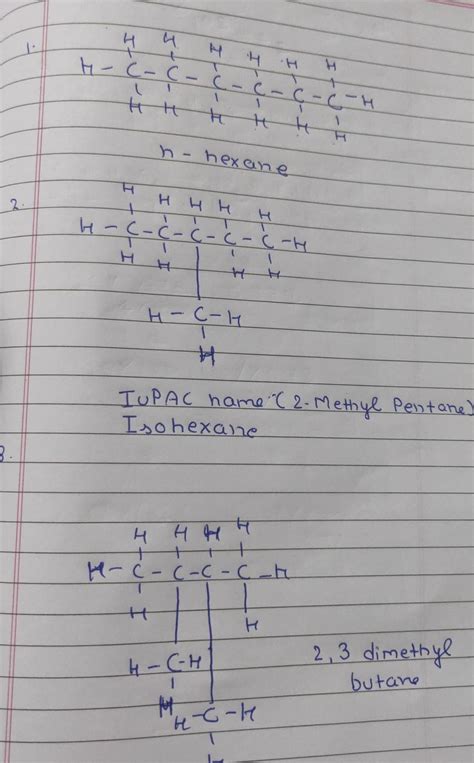 1.
H H H H H H
H - C - C - C - C - C - C - H
H H H H H H
n - hexane
2.
H H H H H
H - C - C - C - C - C - H
H H H H
H - C - H
H
IUPAC name (2-Methyl Pentane)
Isohexane
3.
H H H H
H - C - C - C - C - H
H H
H - C - H
H H - C - H
H
2,3 dimethyl
butane